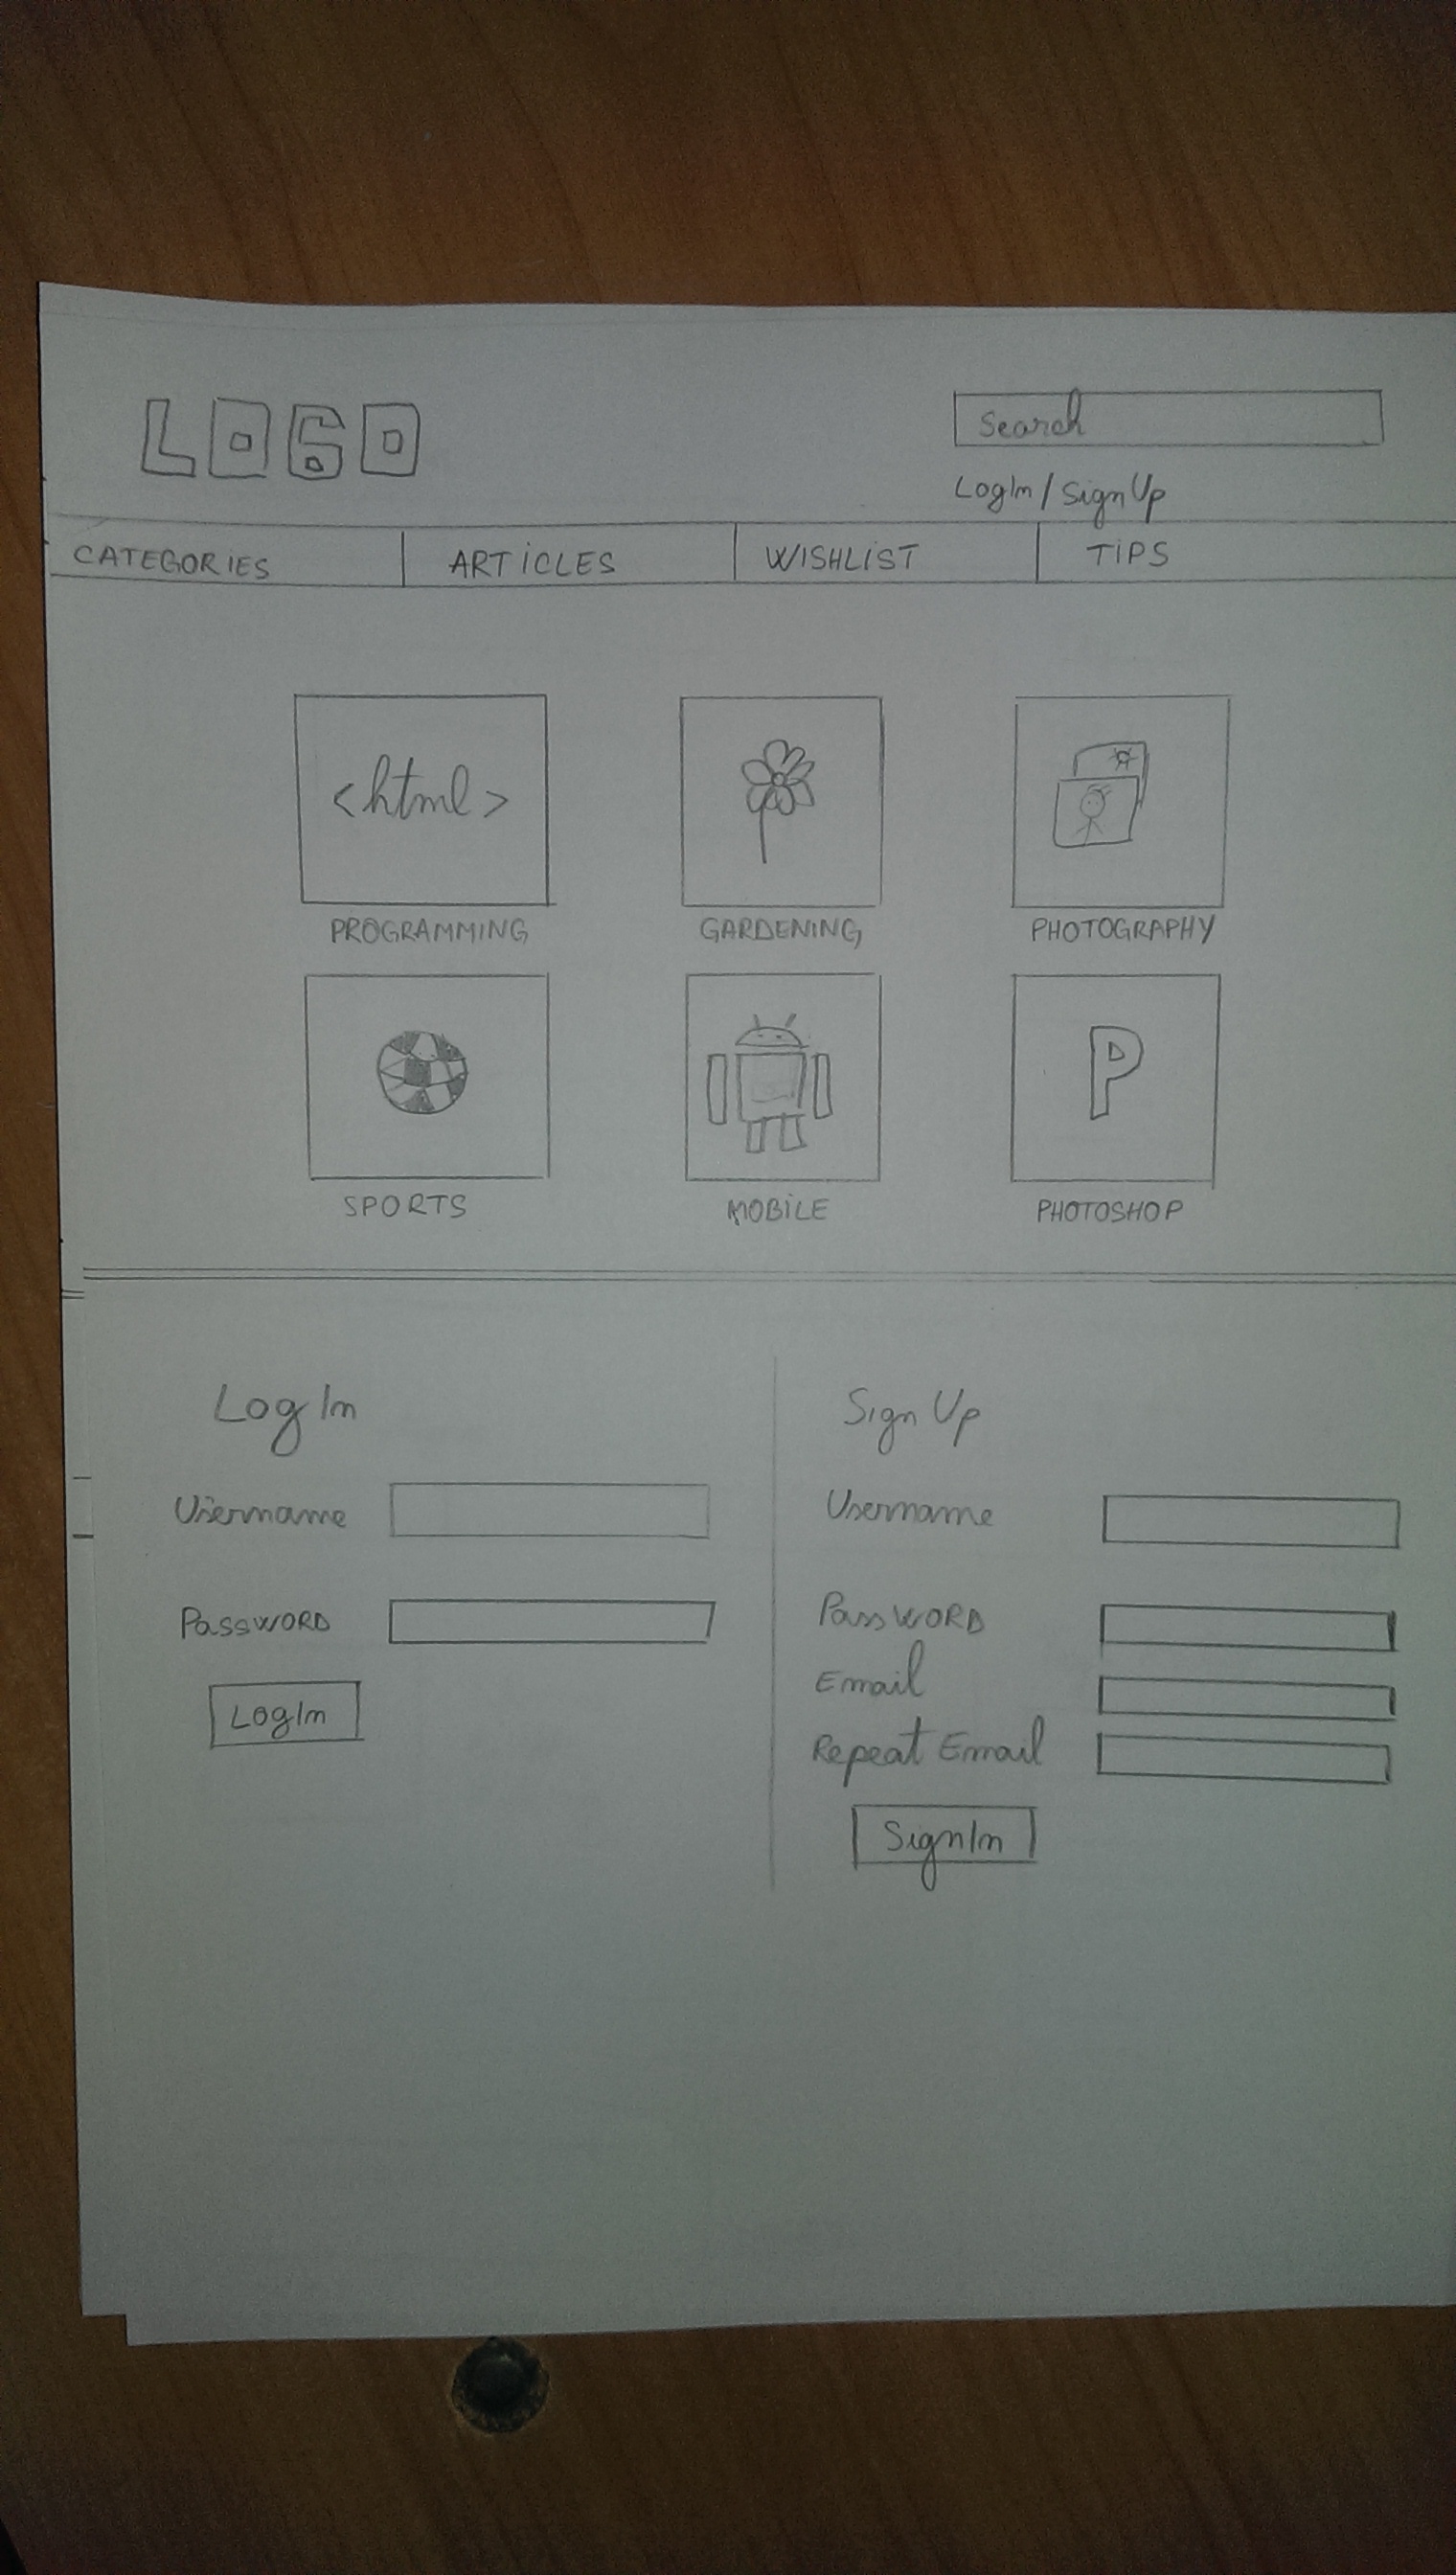 LOGO
Search
LogIn / Sign Up
CATEGORIES ARTICLES WISHLIST TIPS
<html>
PROGRAMMING GARDENING PHOTOGRAPHY
P
SPORTS MOBILE PHOTOSHOP
Log In Sign Up
Username Username
Password Password
Email
LogIn
Repeat Email
SignIn